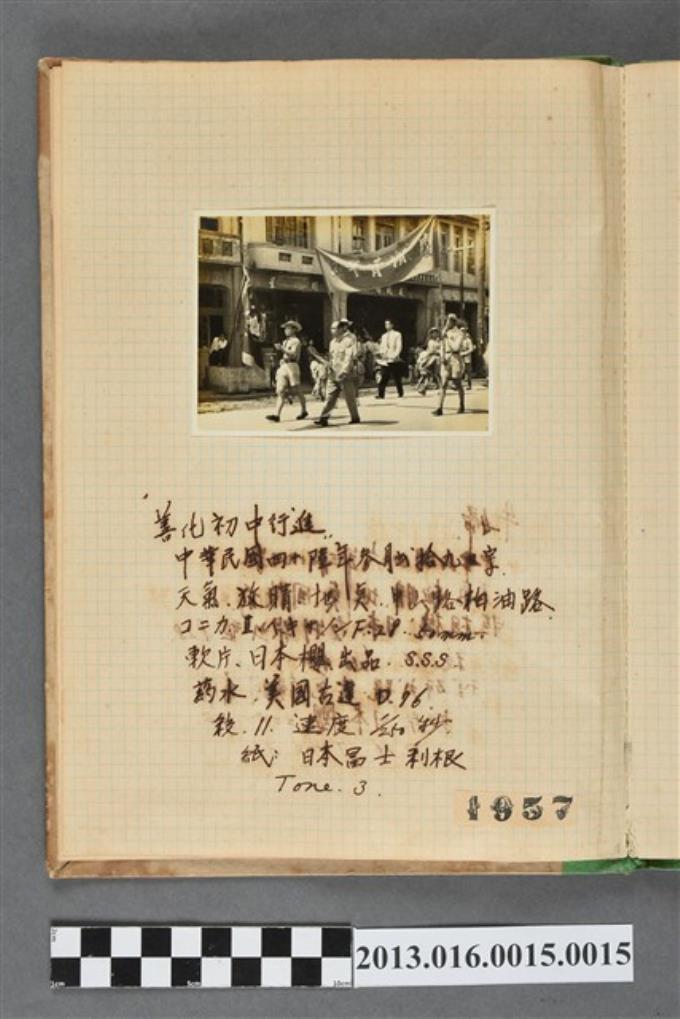 善化初中行進
中華民國四十陸年叁月 拾九 字
天氣.放晴.地点.中 路柏油路
コニカ.II. F:2.8. 50mm.
軟片、日本櫻出品 S.S.S
葯水.美國古達 D.96.
絞.11.速度
紙:日本冨士利根
Tone. 3.
1957
2013.016.0015.0015